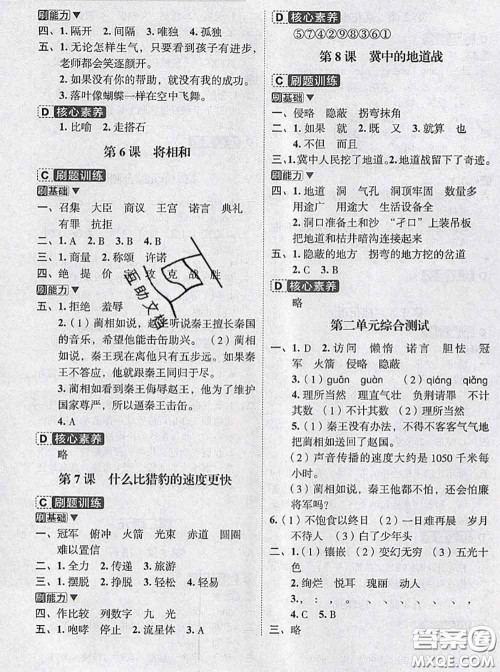 刷能力
四、1. 隔开 2. 间隔 3. 唯独 4. 孤独
五、1. 无论怎样生气，只要看到孩子有进步，
老师都会笑逐颜开。
2. 如果没有你的帮助，就没有我的成功。
3. 落叶像蝴蝶一样在空中飞舞。
D 核心素养
1. 比喻 2. 走搭石
第6课 将相和
C 刷题训练
刷基础
一、召集 大臣 商议 王宫 诺言 典礼
有罪 抗拒
二、1. A 2. B 3. B 4. B
三、1. 胆怯 2. 商量 3. 称颂 许诺
四、绝 提 价 攻 克 战 胜
刷能力
五、1. 拒绝 羞辱
2. （1）蔺相如说，赵王听说秦王擅长秦国
的音乐，希望他能击缶助兴。
（2）秦王现在离他只有五步远。如果秦
王不答应，他就跟秦王同归于尽。
3. 因为蔺相如逼秦王击缶，维
护国家尊严了。
4. A
D 核心素养
略
第7课 什么比猎豹的速度更快
C 刷题训练
刷基础
一、冠军 俯冲 火箭 光束 赤道 圆圈
难以置信
二、1. 全力 2. 传递 3. 旅游
三、1. 摆脱 2. 挣脱 3. 轻松 4. 轻易
刷能力
四、作比较 列数字 九 光
五、1. 咆哮 停止 2. 流星体 3. A
D 核心素养
⑤⑦④②⑨⑧③⑥①
第8课 冀中的地道战
C 刷题训练
刷基础
一、侵略 隐蔽 拐弯抹角
二、1. 如果 就 2. 既 又 3. 就算 也
4. 不但 而且
三、1. 冀中人民挖了地道。地道战留下了奇迹。
刷能力
四、1. 地道 洞 气孔 洞顶牢固 数量多
用途广 用途大 生活设备全
2. 洞口准备土和沙 “孑口”上装吊板
把地道和枯井暗沟连接起来
五、1. 隐蔽的地方 拐弯的地方挖的岔道
2. C 3. B
D 核心素养
略
第二单元综合测试
一、1. D 2. 访问 懒惰 诺言 胆怯 冠
军 火箭 侵略 隐蔽
3. （1）guān guàn （2）qiáng qiǎng
4. 理所当然 理直气壮 负荆请罪 不计
其数 （1）不计其数 （2）理所当然
5. （1）秦王没有办法，不得不客客气气地
把蔺相如送回了赵国。
（2）声音传播的速度大约是1050千米每
小时。
（3）蔺相如说，秦王他都不怕，还会怕廉
将军吗？
6. （1）不饱食以终日 （2）一日难再晨 岁月
不待人 （3）白了少年头
二、1. （1）镶嵌 （2）变幻无穷 （3）五光十
色
2. 绚烂 悦耳 瑰丽 动人
3. C
三、略